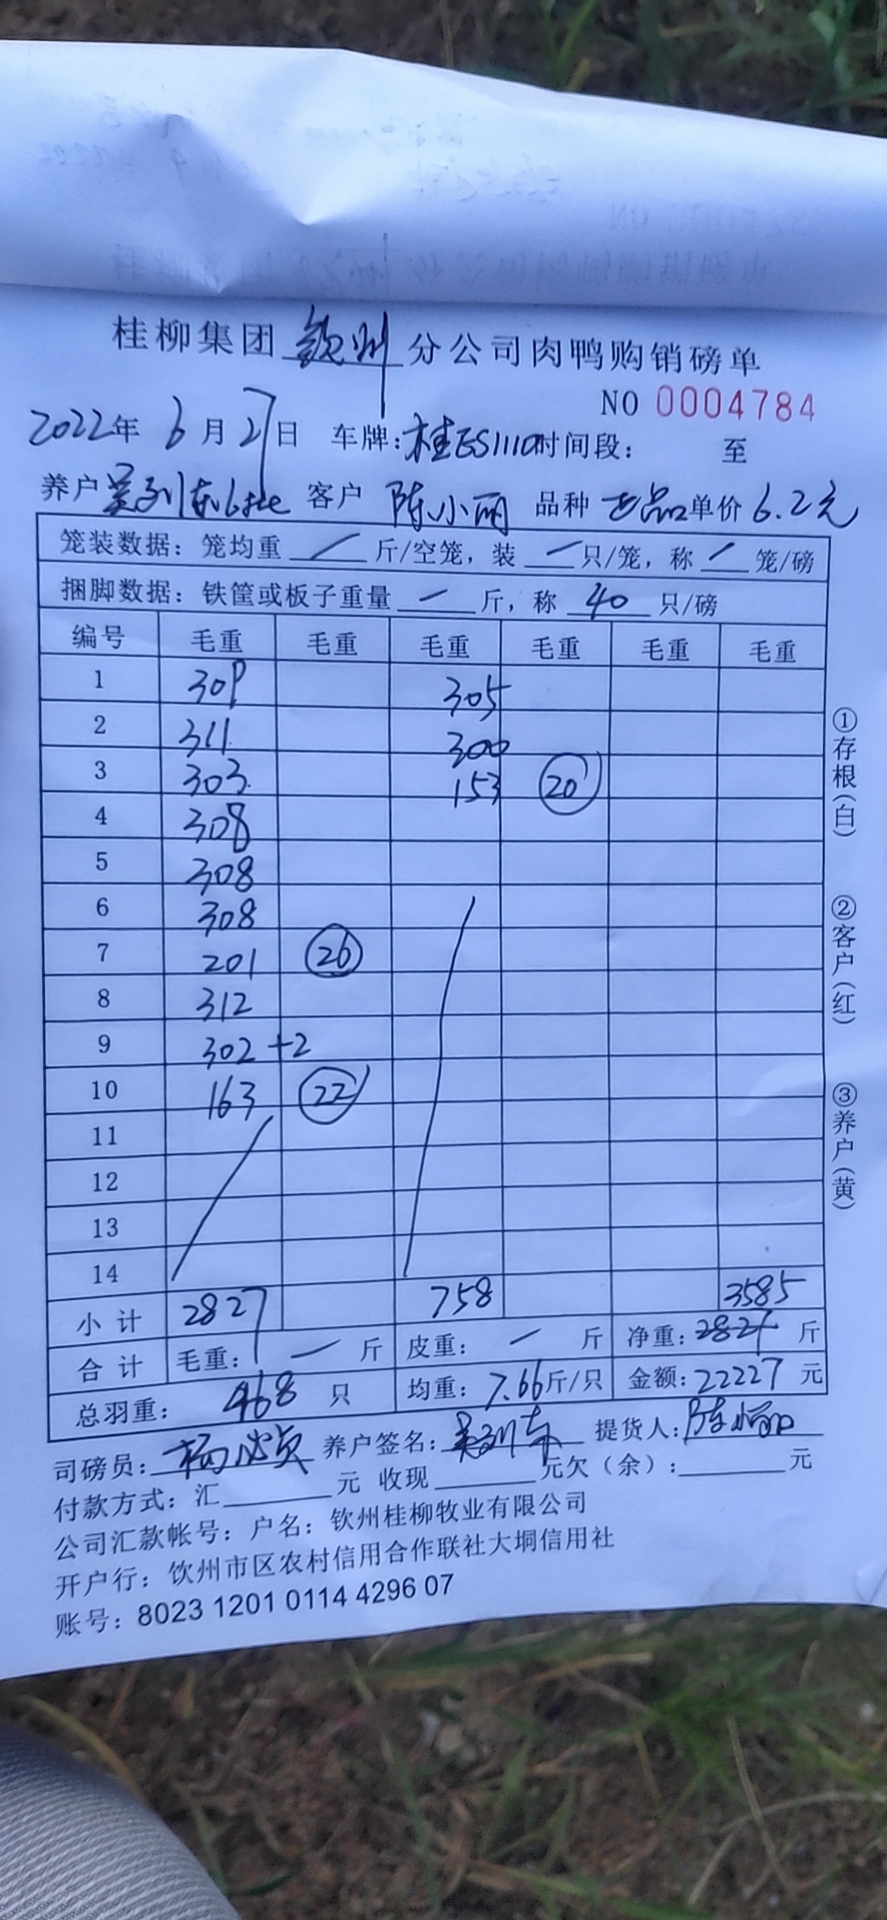 桂柳集团 钦州 分公司肉鸭购销磅单
NO 0004784
2022年 6月27日 车牌:桂ES1110时间段: 至
养户 吴列东6批 客户 陈小丽 品种 土品 单价 6.2元
笼装数据: 笼均重 / 斤/空笼, 装 一 只/笼, 称 / 笼/磅
捆脚数据: 铁筐或板子重量 一 斤, 称 40 只/磅
编号 毛重 毛重 毛重 毛重 毛重 毛重
1 309 305
2 311 300
3 303 153 20
4 308
5 308
6 308
7 201 26
8 312
9 302 +2
10 163 22
11
12
13
14
小计 2827 758 3585
合计 毛重: 一 斤 皮重: 一 斤 净重: 2827 斤
总羽重: 468 只 均重: 7.66斤/只 金额: 22227 元
司磅员: 杨 养户签名: 吴列东 提货人: 陈小丽
付款方式: 汇 元 收现 元欠(余): 元
公司汇款帐号: 户名: 钦州桂柳牧业有限公司
开户行: 钦州市区农村信用合作联社大垌信用社
账号: 8023 1201 0114 4296 07
①存根(白)
②客户(红)
③养户(黄)